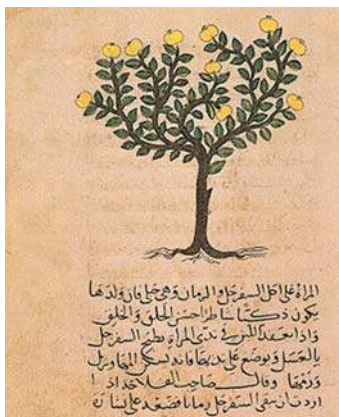 المراة على اكل السفرجل والرمان وهى حبلى فان ولدها
يكون ذكيا شاطرا حسن الخلق والخلق
واذا انعقد اللبن فى ثدى المراة يطبخ السفرجل
بالعسل ويوضع على ثديها فانه يسكن
وورمها وقال صاحب الفلاحه اذا
اردت ان يبقى السفرجل زمانا فضعه على نشارة